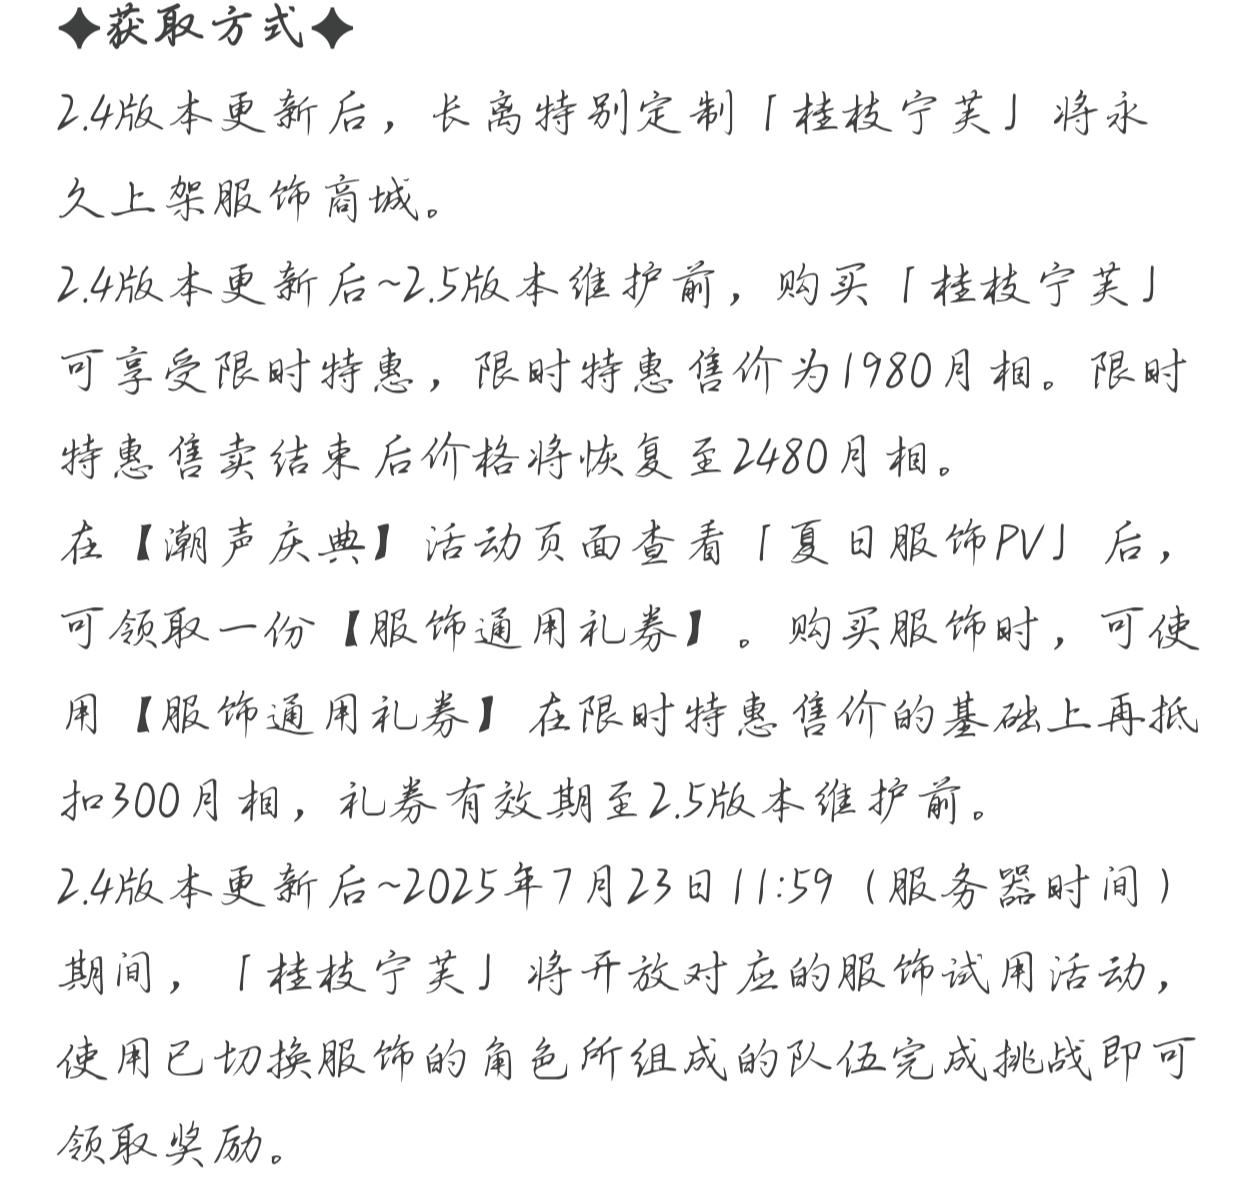 ✦获取方式✦
2.4版本更新后，长离特别定制「桂枝宁芙」将永
久上架服饰商城。
2.4版本更新后~2.5版本维护前，购买「桂枝宁芙」
可享受限时特惠，限时特惠售价为1980月相。限时
特惠售卖结束后价格将恢复至2480月相。
在【潮声庆典】活动页面查看「夏日服饰PV」后，
可领取一份【服饰通用礼券】。购买服饰时，可使
用【服饰通用礼券】在限时特惠售价的基础上再抵
扣300月相，礼券有效期至2.5版本维护前。
2.4版本更新后~2025年7月23日11:59（服务器时间）
期间，「桂枝宁芙」将开放对应的服饰试用活动，
使用已切换服饰的角色所组成的队伍完成挑战即可
领取奖励。